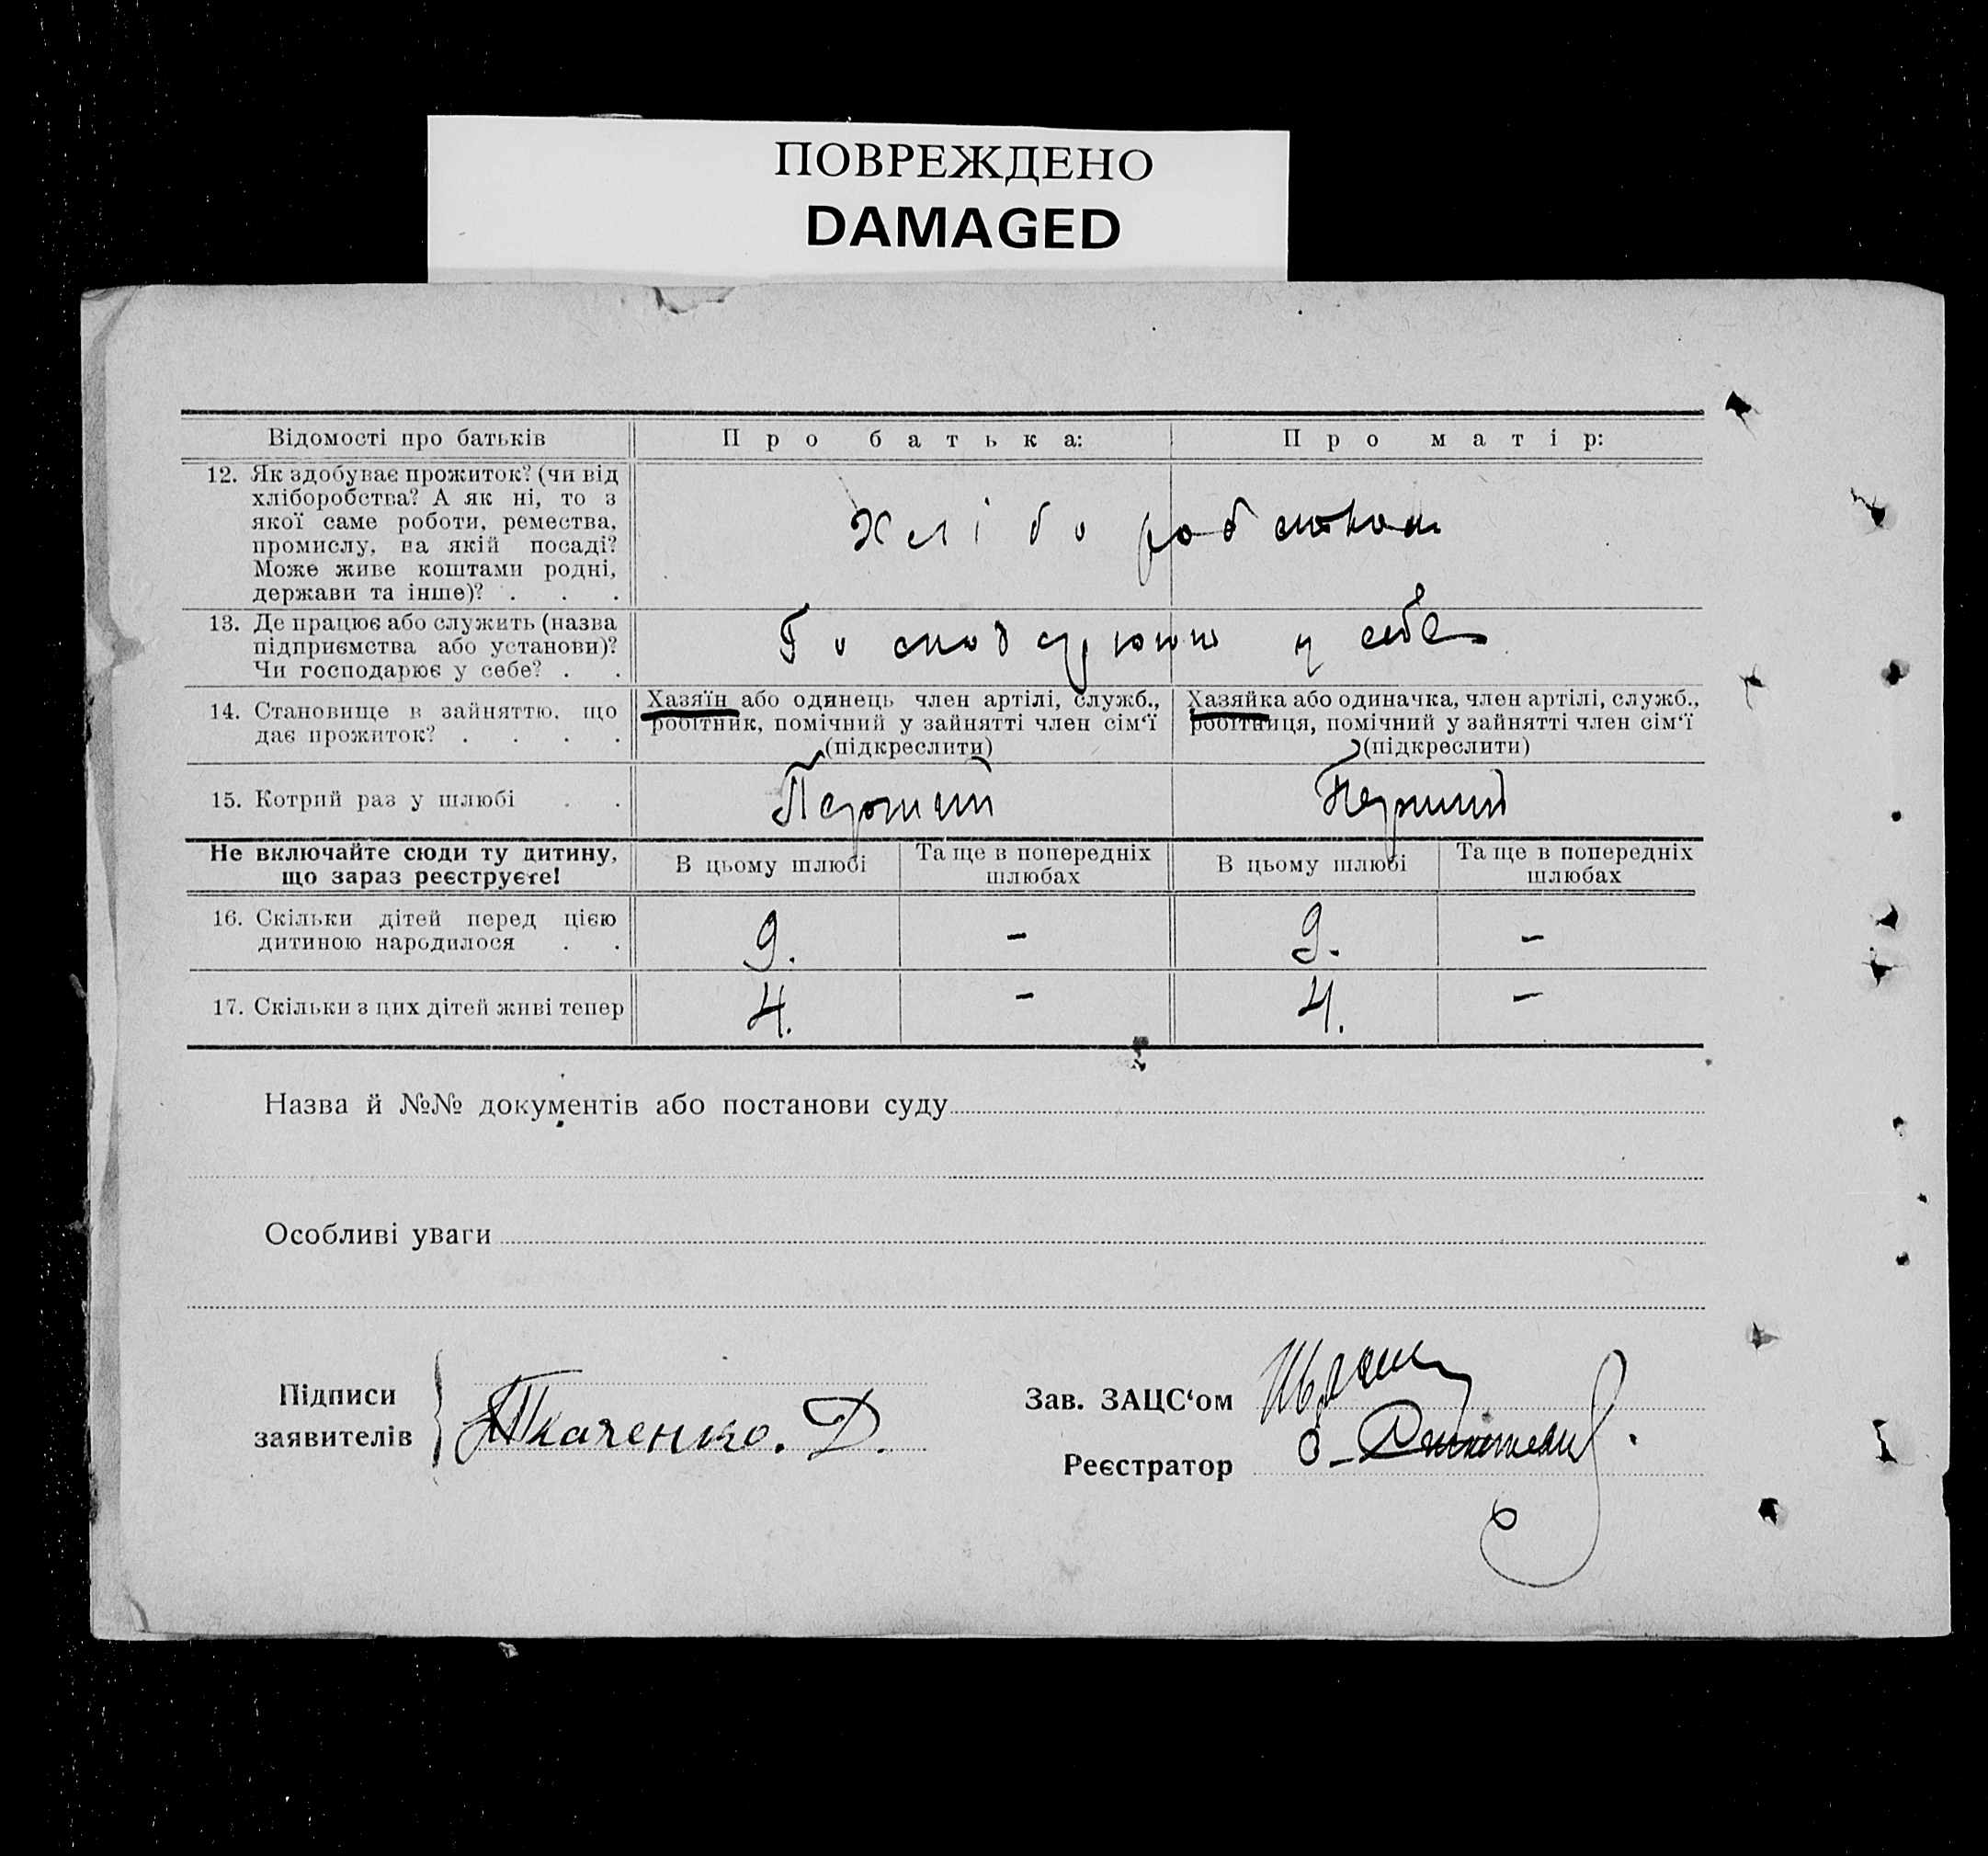 ПОВРЕЖДЕНО
DAMAGED
Відомості про батьків
Про батька:
Про матір:
12. Як здобуває прожиток? (чи від
хліборобства? А як ні, то з
якої саме роботи, ремества,
промислу, на якій посаді?
Може живе коштами родні,
держави та інше)? . . .
Хліборобством
13. Де працює або служить (назва
підприємства або установи)?
Чи господарює у себе? . .
у себе
14. Становище в зайняттю, що
дає прожиток? . . . .
Хазяїн або одинець член артілі, служб.,
робітник, помічний у зайнятті член сім'ї
(підкреслити)
Хазяйка або одиначка, член артілі, служб.,
робітниця, помічний у зайнятті член сім'ї
(підкреслити)
15. Котрий раз у шлюбі . .
Перший
Перший
Не включайте сюди ту дитину,
що зараз реєструєте!
В цьому шлюбі
Та ще в попередніх
шлюбах
В цьому шлюбі
Та ще в попередніх
шлюбах
16. Скільки дітей перед цією
дитиною народилося . .
9.
-
9.
-
17. Скільки з цих дітей живі тепер
4.
-
4.
-
Назва й №№ документів або постанови суду
Особливі уваги
Підписи
заявителів
Ткаченко. Д.
Зав. ЗАЦС'ом
Реєстратор